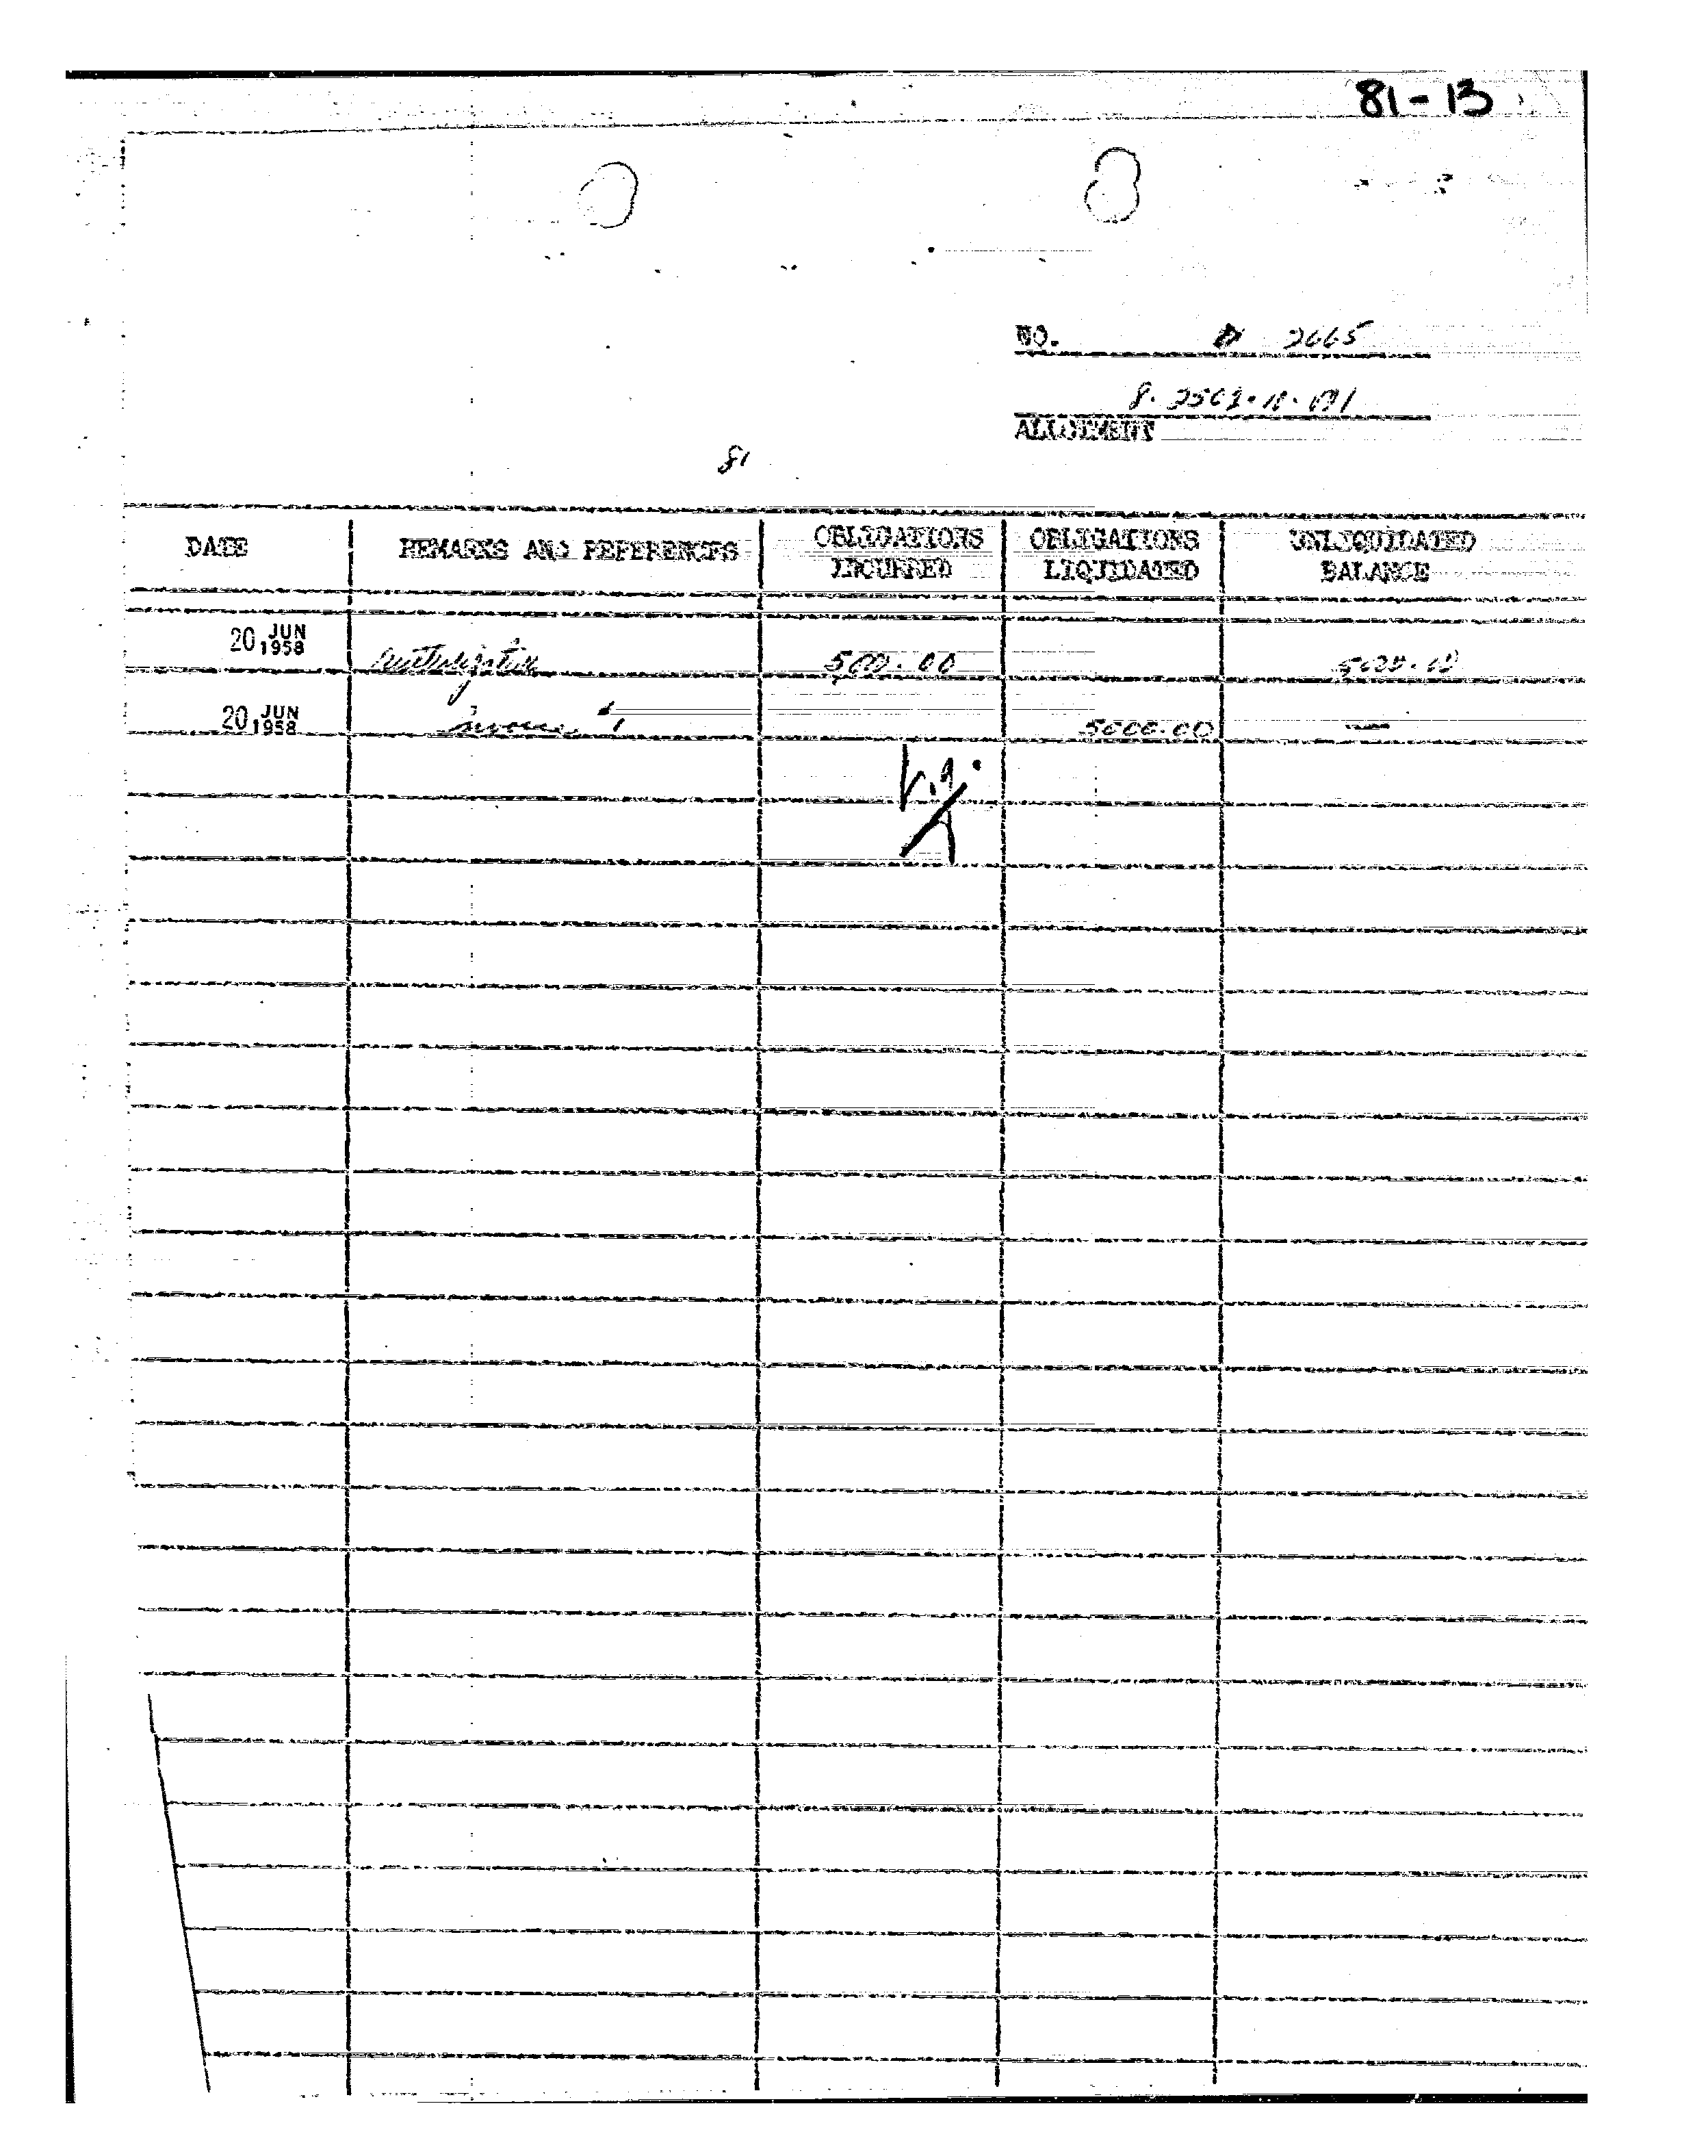 81-13
NO. 2665
8.2502.10.
ALLOTMENT
81
DATE REMARKS AND REFERENCES OBLIGATIONS INCURRED OBLIGATIONS LIQUIDATED UNLIQUIDATED BALANCE
20 JUN 1958 Authorization 500.00
20 JUN 1958 invoice #1 5000.00 —